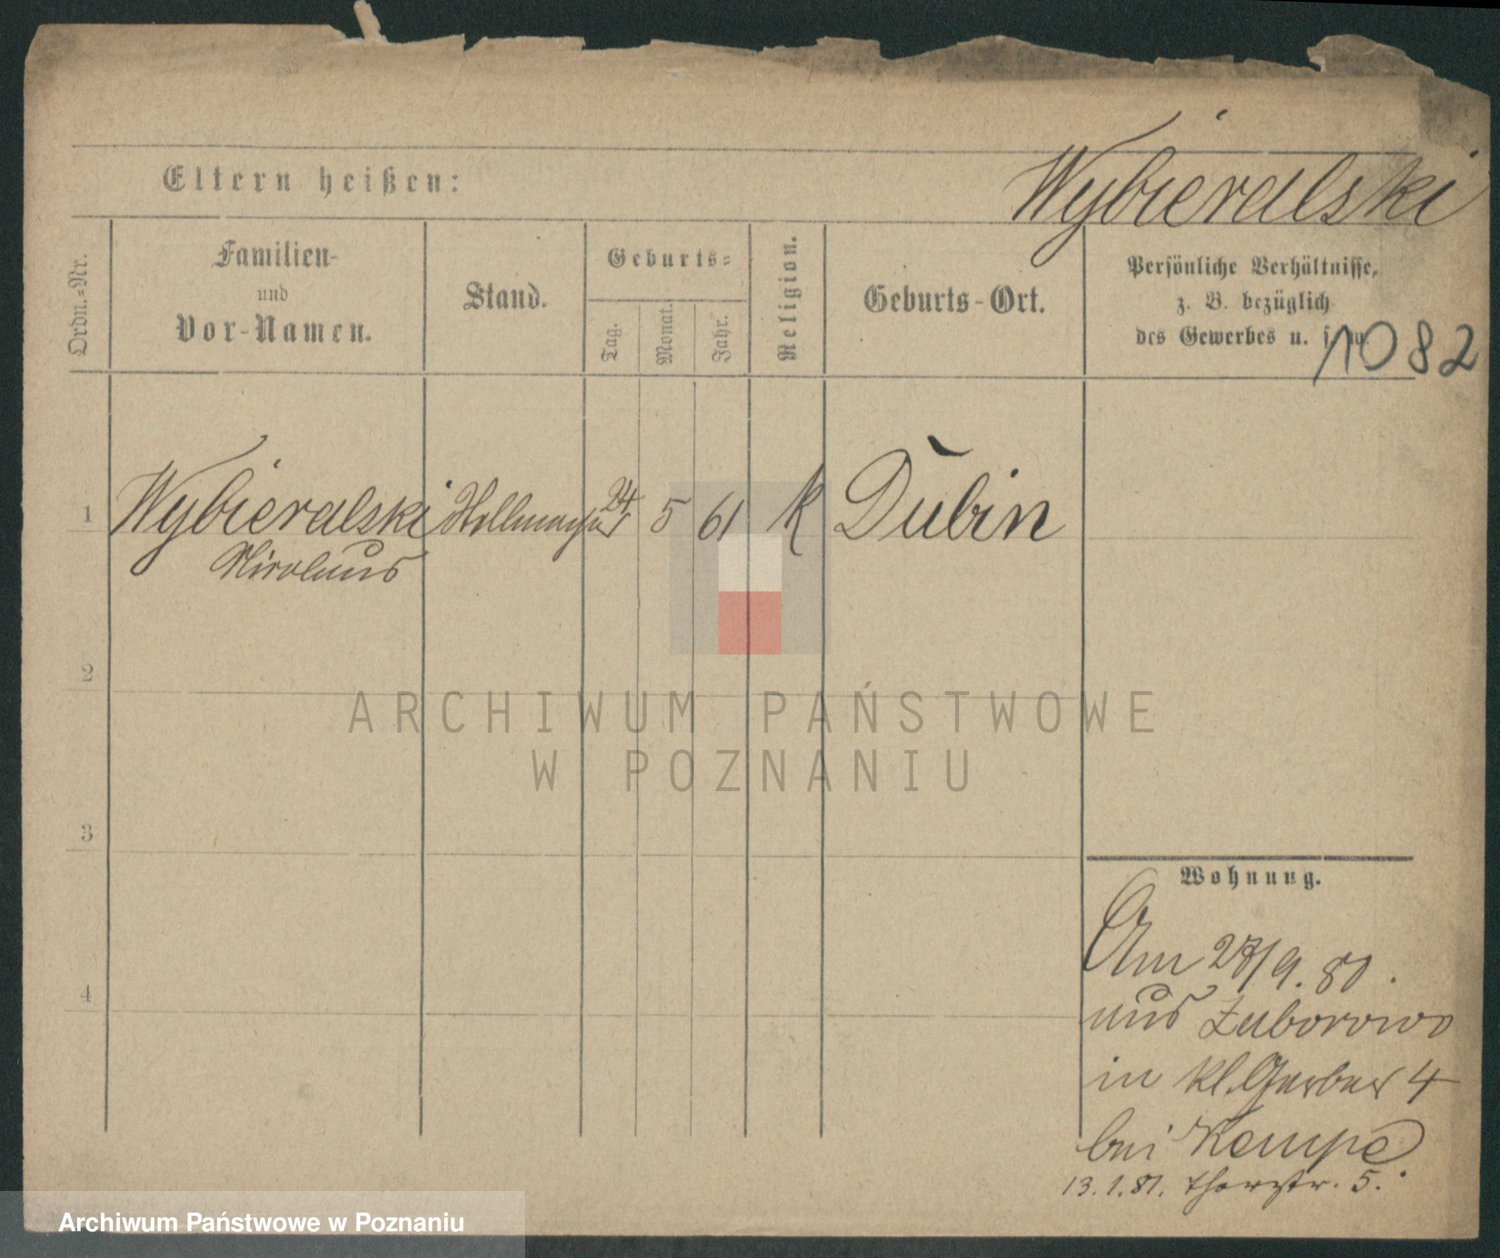 Eltern heißen:
Wybieralski
Ordn.=Nr.
Familien-
und
Vor-Namen.
Stand.
Geburts=
Tag.
Monat.
Jahr.
Religion.
Geburts-Ort.
Persönliche Verhältnisse,
z. B. bezüglich
des Gewerbes u. s. w.
1082
1 Wybieralski 24 5 61 k Dubin
Nicolaus
2
3
4
ARCHIWUM PAŃSTWOWE
W POZNANIU
Wohnung.
Am 28/9. 80.
aus Zaborowo
in kl. Gerber 4
bei Kempe
13.1.81. Thorstr. 5.
Archiwum Państwowe w Poznaniu